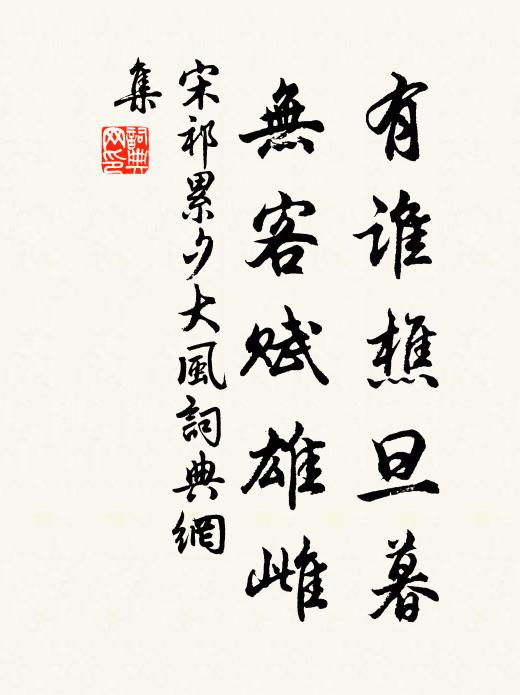 有誰樵旦暮
無客賦雄雌
宋祁累夕大風詞典網
集
詞典网印